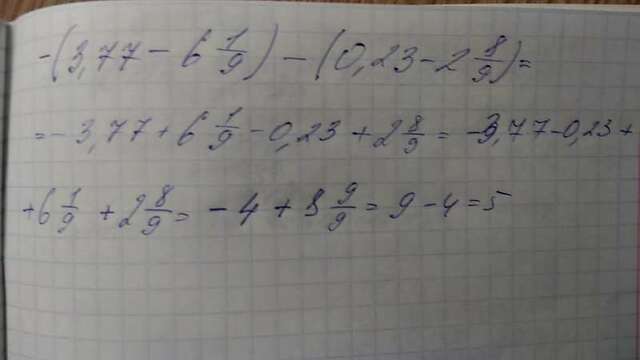 -(3,77 - 6 1/9) - (0,23 - 2 8/9) =
= - 3,77 + 6 1/9 - 0,23 + 2 8/9 = -3,77 - 0,23 +
+ 6 1/9 + 2 8/9 = - 4 + 8 9/9 = 9 - 4 = 5